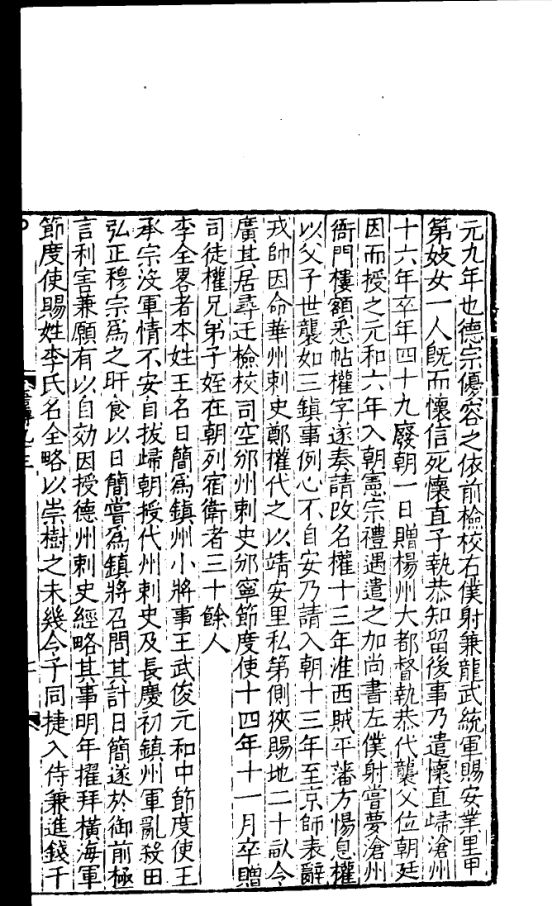 元九年也德宗優容之依前檢校右僕射兼龍武統軍賜安業里甲
第妓女一人旣而懷信死懷直子執恭知留後事乃遣懷直歸滄州
十六年卒年四十九廢朝一日贈楊州大都督執恭代襲父位朝廷
因而授之元和六年入朝憲宗禮遇遣之加尚書左僕射嘗夢滄州
衙門樓額悉帖權字遂奏請改名權十三年淮西賊平藩方惕息權
以父子世襲如三鎮事例心不自安乃請入朝十三年至京師表辭
戎帥因命華州刺史鄭權代之以靖安里私第側狹賜地二十畝令
廣其居尋迁檢校司空邠州刺史邠寧節度使十四年十一月卒贈
司徒權兄弟子姪在朝列宿衛者三十餘人
李全畧者本姓王名日簡爲鎮州小將事王武俊元和中節度使王
承宗没軍情不安自拔歸朝授代州刺史及長慶初鎮州軍亂殺田
弘正穆宗爲之旰食以日簡嘗爲鎮將召問其計日簡遂於御前極
言利害兼願有以自効因授德州刺史經略其事明年擢拜橫海軍
節度使賜姓李氏名全略以崇樹之未幾令子同捷入侍兼進錢千